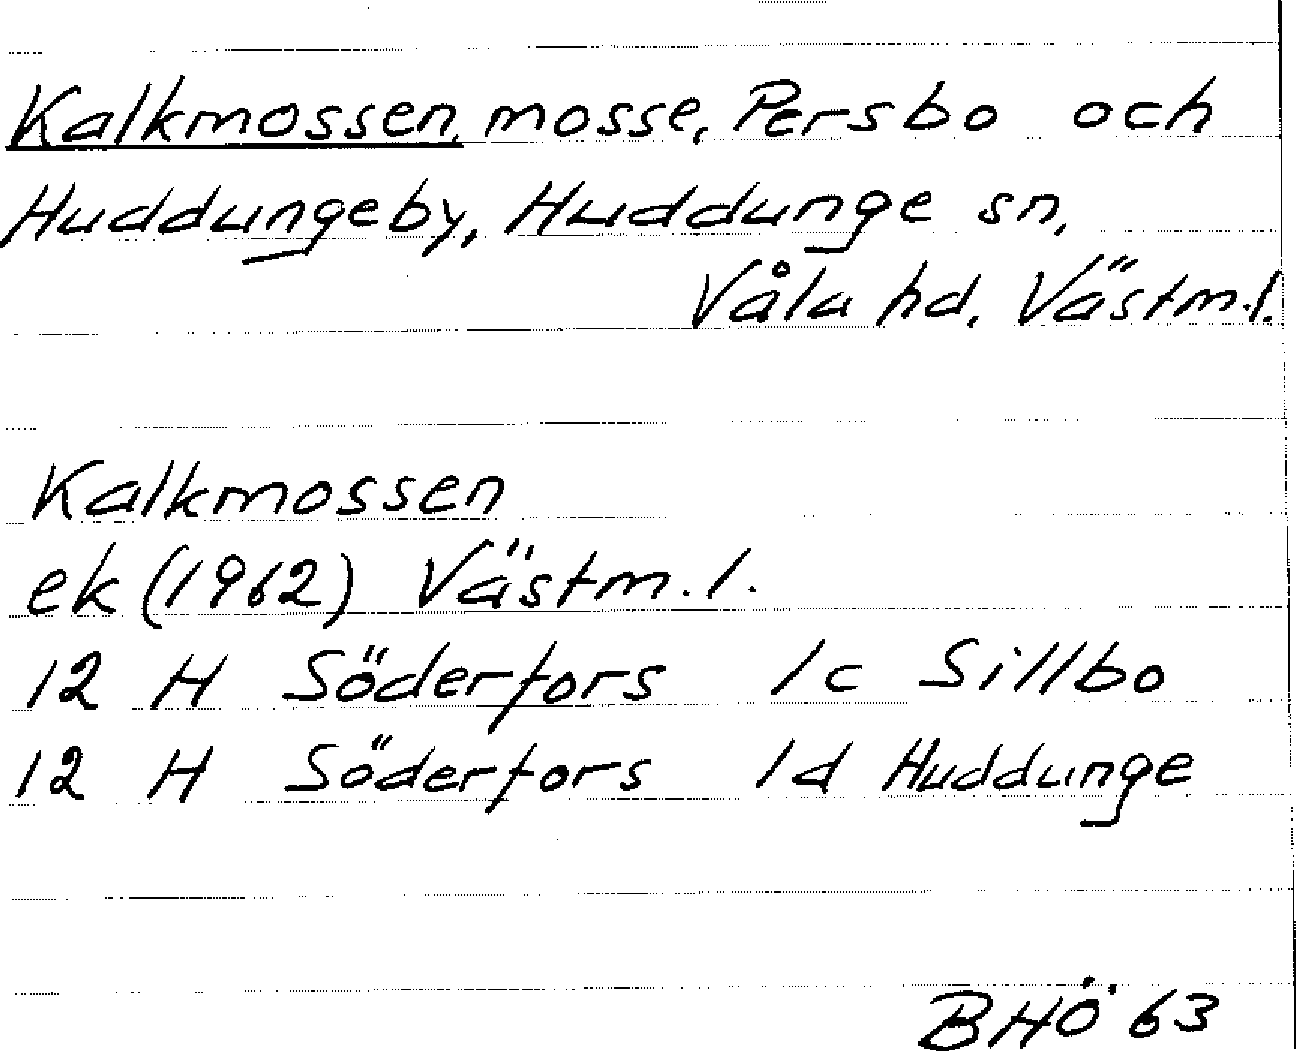 Kalkmossen, mosse, Persbo och
Huddungeby, Huddunge sn,
Våla hd, Västm.l.
Kalkmossen
ek (1962) Västm.l.
12 H Söderfors 1c Sillbo
12 H Söderfors 1d Huddunge
BHÖ 63